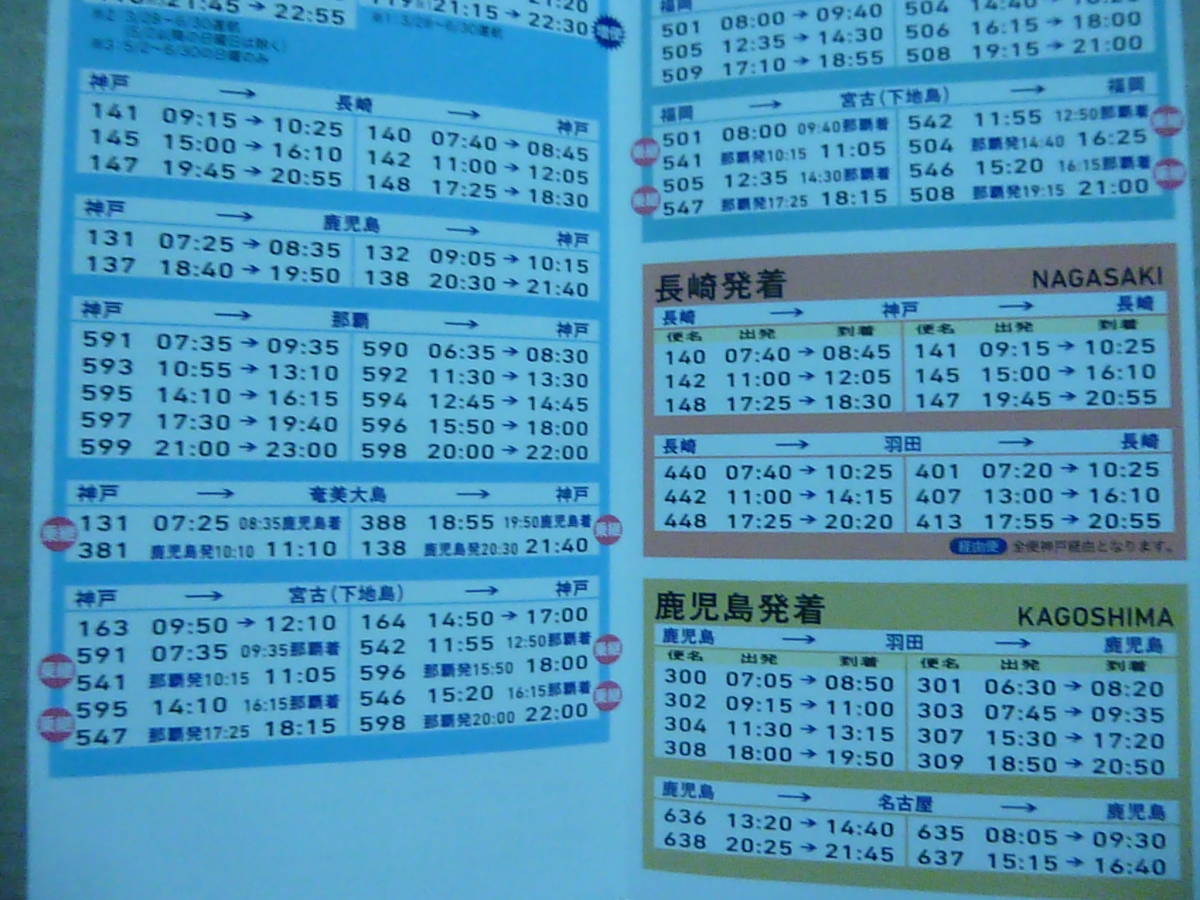 21:45→22:55
※2 3/29～6/30運航
(5/2以降の日曜日は除く)
※3:5/2～6/30の日曜のみ
21:20
21:15→22:30
増便
※1:3/29～6/30運航
神戸 → 長崎 → 神戸
141 09:15→10:25 140 07:40→08:45
145 15:00→16:10 142 11:00→12:05
147 19:45→20:55 148 17:25→18:30
神戸 → 鹿児島 → 神戸
131 07:25→08:35 132 09:05→10:15
137 18:40→19:50 138 20:30→21:40
神戸 → 那覇 → 神戸
591 07:35→09:35 590 06:35→08:30
593 10:55→13:10 592 11:30→13:30
595 14:10→16:15 594 12:45→14:45
597 17:30→19:40 596 15:50→18:00
599 21:00→23:00 598 20:00→22:00
神戸 → 奄美大島 → 神戸
乗継 131 07:25 08:35鹿児島着 388 18:55 19:50鹿児島着 乗継
381 鹿児島発10:10 11:10 138 鹿児島発20:30 21:40
神戸 → 宮古(下地島) → 神戸
163 09:50→12:10 164 14:50→17:00
乗継 591 07:35 09:35那覇着 542 11:55 12:50那覇着 乗継
541 那覇発10:15 11:05 596 那覇発15:50 18:00
乗継 595 14:10 16:15那覇着 546 15:20 16:15那覇着 乗継
547 那覇発17:25 18:15 598 那覇発20:00 22:00
福岡
501 08:00→09:40 504 14:40→
505 12:35→14:30 506 16:15→18:00
509 17:10→18:55 508 19:15→21:00
福岡 → 宮古(下地島) → 福岡
乗継 501 08:00 09:40那覇着 542 11:55 12:50那覇着 乗継
541 那覇発10:15 11:05 504 那覇発14:40 16:25
乗継 505 12:35 14:30那覇着 546 15:20 16:15那覇着 乗継
547 那覇発17:25 18:15 508 那覇発19:15 21:00
長崎発着 NAGASAKI
長崎 → 神戸 → 長崎
便名 出発 到着 便名 出発 到着
140 07:40→08:45 141 09:15→10:25
142 11:00→12:05 145 15:00→16:10
148 17:25→18:30 147 19:45→20:55
長崎 → 羽田 → 長崎
440 07:40→10:25 401 07:20→10:25
442 11:00→14:15 407 13:00→16:10
448 17:25→20:20 413 17:55→20:55
経由便 全便神戸経由となります。
鹿児島発着 KAGOSHIMA
鹿児島 → 羽田 → 鹿児島
便名 出発 到着 便名 出発 到着
300 07:05→08:50 301 06:30→08:20
302 09:15→11:00 303 07:45→09:35
304 11:30→13:15 307 15:30→17:20
308 18:00→19:50 309 18:50→20:50
鹿児島 → 名古屋 → 鹿児島
636 13:20→14:40 635 08:05→09:30
638 20:25→21:45 637 15:15→16:40